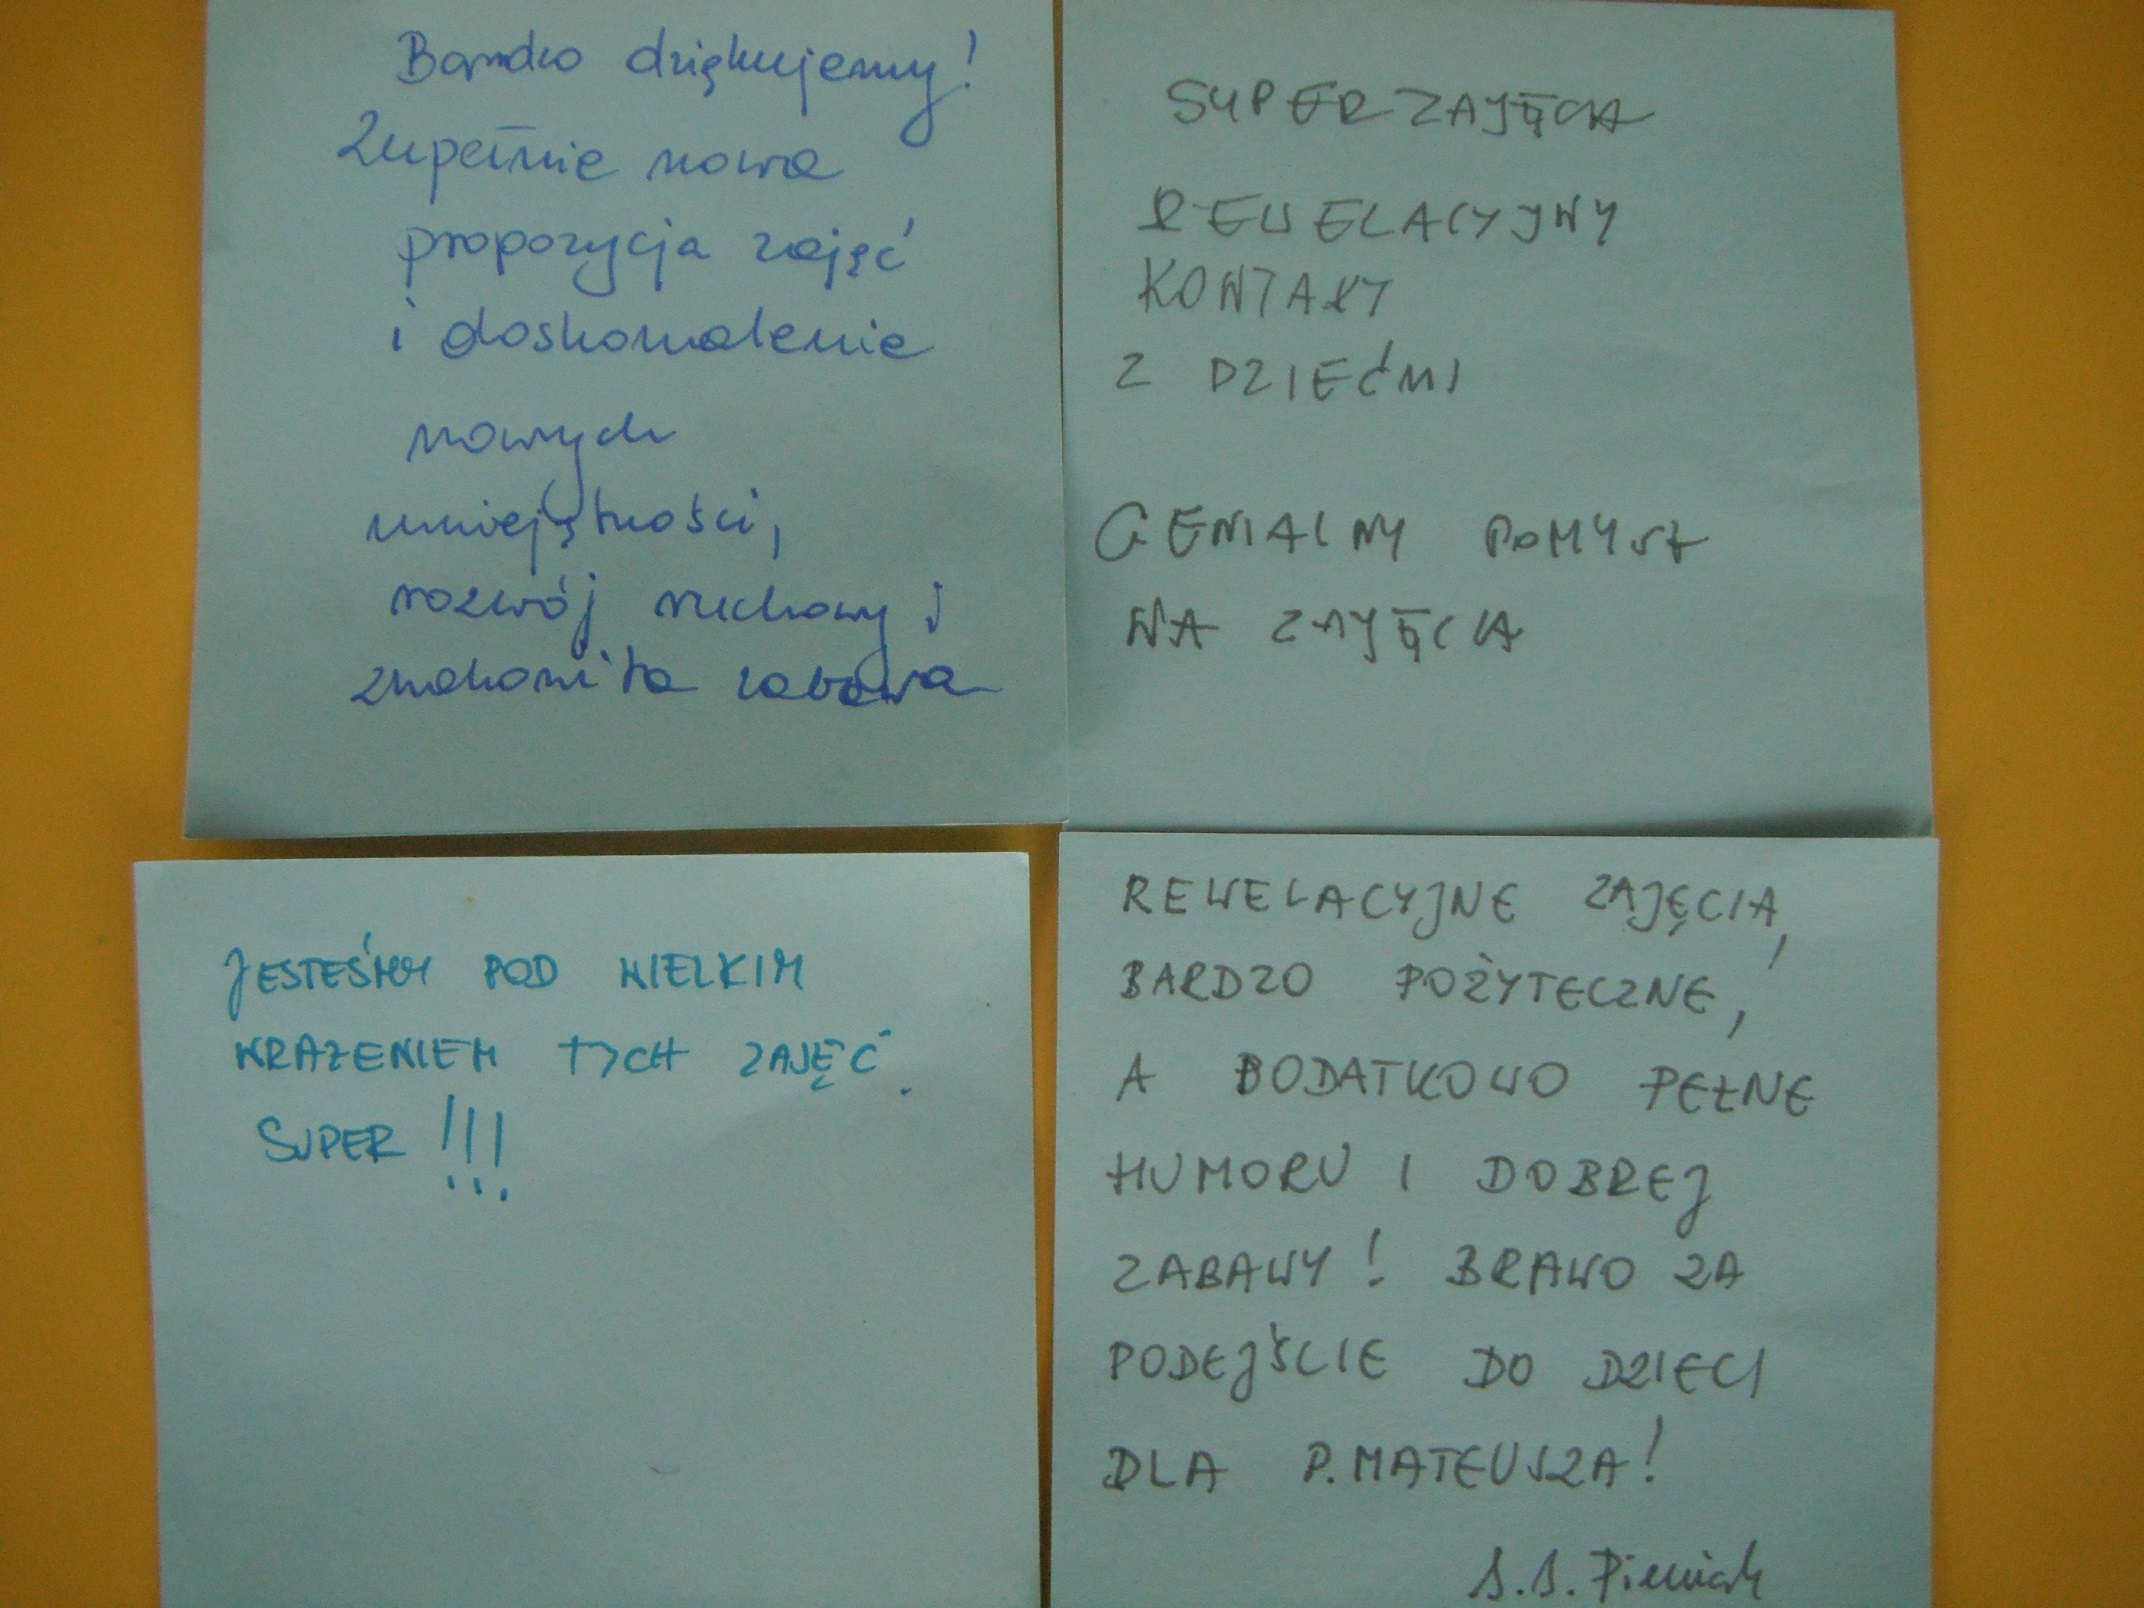 Bardzo dziękujemy!
Zupełnie nowa
propozycja zajęć
i doskonalenie
nowych
umiejętności,
rozwój ruchowy i
znakomita zabawa
SUPER ZAJĘCIA
REWELACYJNY
KONTAKT
Z DZIEĆMI
GENIALNY POMYSŁ
NA ZAJĘCIA
JESTEŚMY POD WIELKIM
WRAŻENIEM TYCH ZAJĘĆ.
SUPER!!!
REWELACYJNE ZAJĘCIA,
BARDZO POŻYTECZNE,
A DODATKOWO PEŁNE
HUMORU I DOBREJ
ZABAWY! BRAWO ZA
PODEJŚCIE DO DZIECI
DLA P. MATEUSZA!